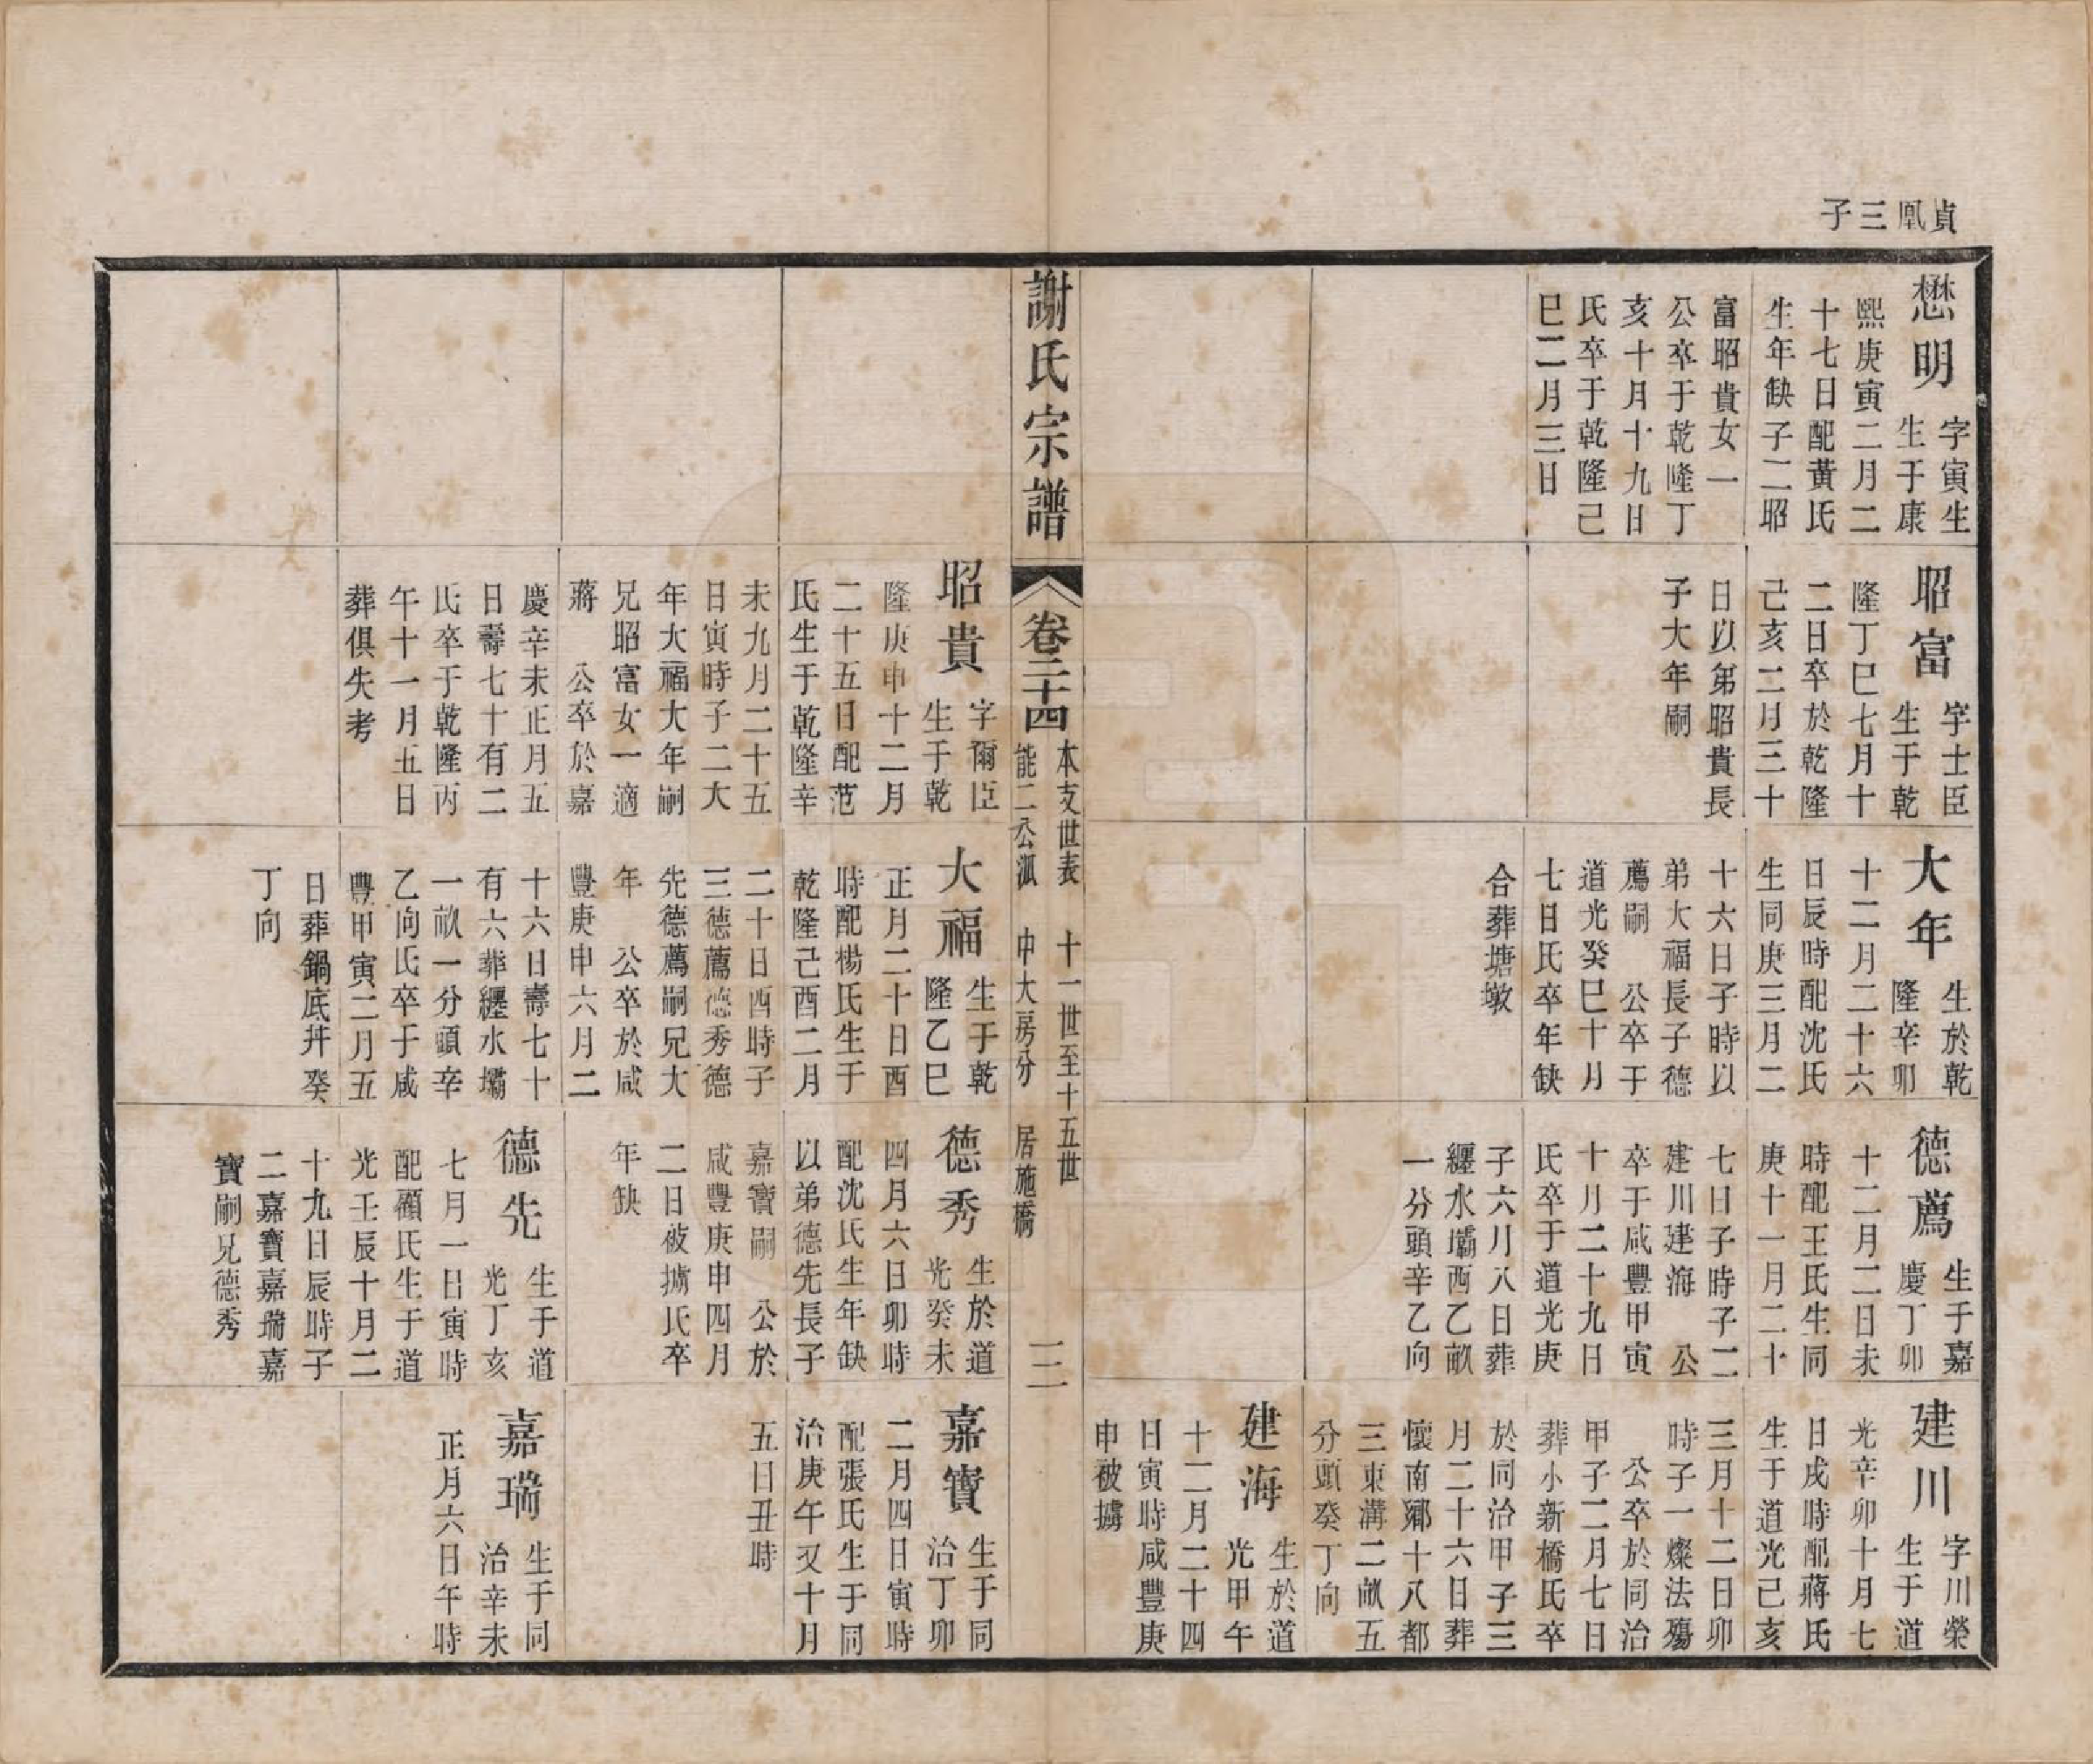 貞凰三子
懋明
字寅生
生于康
熙庚寅二月二
十七日配黃氏
生年缺子二昭
富昭貴女一
公卒于乾隆丁
亥十月十九日
氏卒于乾隆己
巳二月三日
昭富
字士臣
生于乾
隆丁巳七月十
二日卒於乾隆
己亥二月三十
日以弟昭貴長
子大年嗣
大年
生於乾
隆辛卯
十二月二十六
日辰時配沈氏
生同庚三月二
十六日子時以
弟大福長子德
薦嗣　公卒于
道光癸巳十月
七日氏卒年缺
合葬塘墩
德薦
生于嘉
慶丁卯
十二月二日未
時配王氏生同
庚十一月二十
七日子時子二
建川建海　公
卒于咸豐甲寅
十月二十九日
氏卒于道光庚
子六月八日葬
纒水壩西乙畝
一分頭辛乙向
建川
字川榮
生于道
光辛卯十月七
日戌時配蔣氏
生于道光己亥
三月十二日卯
時子一燦法殤
公卒於同治
甲子二月七日
葬小新橋氏卒
於同治甲子三
月二十六日葬
懷南鄉十八都
三東溝二畝五
分頭癸丁向
建海
生於道
光甲午
十二月二十四
日寅時咸豐庚
申被擄
謝氏宗譜
卷二十四
本支世表　十一世至十五世
能二公派　中大房分　居施橋
三二
昭貴
字爾臣
生于乾
隆庚申十二月
二十五日配范
氏生于乾隆辛
未九月二十五
日寅時子二大
年大福大年嗣
兄昭富女一適
蔣　公卒於嘉
慶辛未正月五
日壽七十有二
氏卒于乾隆丙
午十一月五日
葬俱失考
大福
生于乾
隆乙巳
正月二十日酉
時配楊氏生于
乾隆己酉二月
二十日酉時子
三德薦德秀德
先德薦嗣兄大
年　公卒於咸
豐庚申六月二
十六日壽七十
有六葬纒水壩
一畝一分頭辛
乙向氏卒于咸
豐甲寅二月五
日葬鍋底丼癸
丁向
德秀
生於道
光癸未
四月六日卯時
配沈氏生年缺
以弟德先長子
嘉寶嗣　公於
咸豐庚申四月
二日被擄氏卒
年缺
德先
生于道
光丁亥
七月一日寅時
配顧氏生于道
光壬辰十月二
十九日辰時子
二嘉寶嘉瑞嘉
寶嗣兄德秀
嘉寶
生于同
治丁卯
二月四日寅時
配張氏生于同
治庚午又十月
五日丑時
嘉瑞
生于同
治辛未
正月六日午時